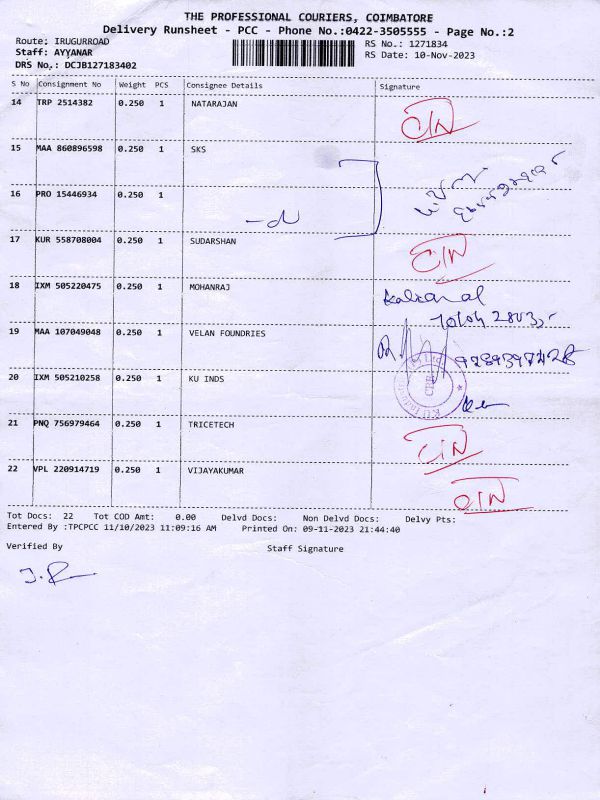 THE PROFESSIONAL COURIERS, COIMBATORE
Delivery Runsheet - PCC - Phone No.:0422-3505555 - Page No.:2
Route: IRUGURROAD
RS No.: 1271834
Staff: AYYANAR
RS Date: 10-Nov-2023
DRS No.: DCJB127183402
S No Consignment No Weight PCS Consignee Details Signature
14 TRP 2514382 0.250 1 NATARAJAN
15 MAA 860896598 0.250 1 SKS
16 PRO 15446934 0.250 1
17 KUR 558708004 0.250 1 SUDARSHAN
18 IXM 505220475 0.250 1 MOHANRAJ
19 MAA 107049048 0.250 1 VELAN FOUNDRIES
20 IXM 505210258 0.250 1 KU INDS
21 PNQ 756979464 0.250 1 TRICETECH
22 VPL 220914719 0.250 1 VIJAYAKUMAR
Tot Docs: 22 Tot COD Amt: 0.00 Delvd Docs: Non Delvd Docs: Delvy Pts:
Entered By :TPCPCC 11/10/2023 11:09:16 AM Printed On: 09-11-2023 21:44:40
Verified By
Staff Signature